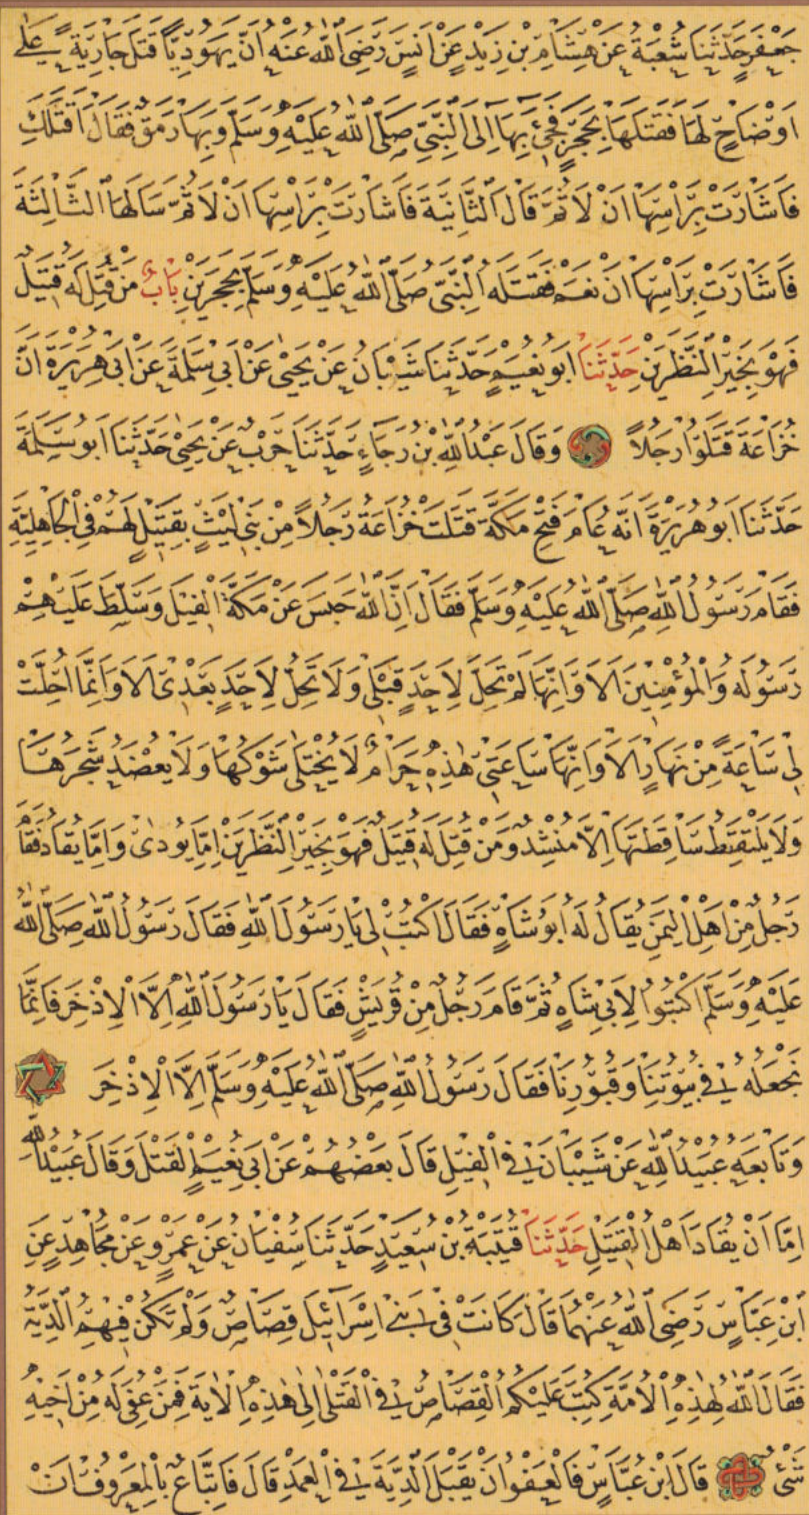 جَعْفَرٍ حَدَّثَنَا شُعْبَةُ عَنْ هِشَامِ بْنِ زَيْدٍ عَنْ اَنَسٍ رَضِيَ اللّٰهُ عَنْهُ اَنَّ يَهُودِيًّا قَتَلَ جَارِيَةً عَلٰى
اَوْضَاحٍ لَهَا فَقَتَلَهَا بِحَجَرٍ فَجِئَ بِهَا اِلَى النَّبِيِّ صَلَّى اللّٰهُ عَلَيْهِ وَسَلَّمَ وَبِهَا رَمَقٌ فَقَالَ اَقَتَلَكِ
فَاَشَارَتْ بِرَاْسِهَا اَنْ لَا ثُمَّ قَالَ الثَّانِيَةَ فَاَشَارَتْ بِرَاْسِهَا اَنْ لَا ثُمَّ سَاَلَهَا الثَّالِثَةَ
فَاَشَارَتْ بِرَاْسِهَا اَنْ نَعَمْ فَقَتَلَهُ النَّبِيُّ صَلَّى اللّٰهُ عَلَيْهِ وَسَلَّمَ بِحَجَرَيْنِ بَابٌ مَنْ قُتِلَ لَهُ قَتِيلٌ
فَهُوَ بِخَيْرِ النَّظَرَيْنِ حَدَّثَنَا اَبُو نُعَيْمٍ حَدَّثَنَا شَيْبَانُ عَنْ يَحْيٰى عَنْ اَبِي سَلَمَةَ عَنْ اَبِي هُرَيْرَةَ اَنَّ
خُزَاعَةَ قَتَلُوا رَجُلًا وَقَالَ عَبْدُ اللّٰهِ بْنُ رَجَاءٍ حَدَّثَنَا حَرْبٌ عَنْ يَحْيٰى حَدَّثَنَا اَبُو سَلَمَةَ
حَدَّثَنَا اَبُو هُرَيْرَةَ اَنَّهُ عَامَ فَتْحِ مَكَّةَ قَتَلَتْ خُزَاعَةُ رَجُلًا مِنْ بَنِي لَيْثٍ بِقَتِيلٍ لَهُمْ فِي الْجَاهِلِيَّةِ
فَقَامَ رَسُولُ اللّٰهِ صَلَّى اللّٰهُ عَلَيْهِ وَسَلَّمَ فَقَالَ اِنَّ اللّٰهَ حَبَسَ عَنْ مَكَّةَ الْفِيلَ وَسَلَّطَ عَلَيْهِمْ
رَسُولَهُ وَالْمُؤْمِنِينَ اَلَا وَاِنَّهَا لَمْ تَحِلَّ لِاَحَدٍ قَبْلِي وَلَا تَحِلُّ لِاَحَدٍ بَعْدِي اَلَا وَاِنَّمَا اُحِلَّتْ
لِي سَاعَةً مِنْ نَهَارٍ اَلَا وَاِنَّهَا سَاعَتِي هٰذِهِ حَرَامٌ لَا يُخْتَلٰى شَوْكُهَا وَلَا يُعْضَدُ شَجَرُهَا
وَلَا يَلْتَقِطُ سَاقِطَتَهَا اِلَّا مُنْشِدٌ وَمَنْ قُتِلَ لَهُ قَتِيلٌ فَهُوَ بِخَيْرِ النَّظَرَيْنِ اِمَّا يُودٰى وَاِمَّا يُقَادُ فَقَامَ
رَجُلٌ مِنْ اَهْلِ الْيَمَنِ يُقَالُ لَهُ اَبُو شَاهٍ فَقَالَ اكْتُبْ لِي يَا رَسُولَ اللّٰهِ فَقَالَ رَسُولُ اللّٰهِ صَلَّى اللّٰهُ
عَلَيْهِ وَسَلَّمَ اكْتُبُوا لِاَبِي شَاهٍ ثُمَّ قَامَ رَجُلٌ مِنْ قُرَيْشٍ فَقَالَ يَا رَسُولَ اللّٰهِ اِلَّا الْاِذْخِرَ فَاِنَّمَا
نَجْعَلُهُ فِي بُيُوتِنَا وَقُبُورِنَا فَقَالَ رَسُولُ اللّٰهِ صَلَّى اللّٰهُ عَلَيْهِ وَسَلَّمَ اِلَّا الْاِذْخِرَ
وَتَابَعَهُ عُبَيْدُ اللّٰهِ عَنْ شَيْبَانَ فِي الْفِيلِ قَالَ بَعْضُهُمْ عَنْ اَبِي نُعَيْمٍ الْقَتْلَ وَقَالَ عُبَيْدُ اللّٰهِ
اِمَّا اَنْ يُقَادَ اَهْلُ الْقَتِيلِ حَدَّثَنَا قُتَيْبَةُ بْنُ سَعِيدٍ حَدَّثَنَا سُفْيَانُ عَنْ عَمْرٍو عَنْ مُجَاهِدٍ عَنِ
ابْنِ عَبَّاسٍ رَضِيَ اللّٰهُ عَنْهُمَا قَالَ كَانَتْ فِي بَنِي اِسْرَائِيلَ قِصَاصٌ وَلَمْ تَكُنْ فِيهِمُ الدِّيَةُ
فَقَالَ اللّٰهُ لِهٰذِهِ الْاُمَّةِ كُتِبَ عَلَيْكُمُ الْقِصَاصُ فِي الْقَتْلٰى اِلٰى هٰذِهِ الْاٰيَةِ فَمَنْ عُفِيَ لَهُ مِنْ اَخِيهِ
شَيْءٌ قَالَ ابْنُ عَبَّاسٍ فَالْعَفْوُ اَنْ يَقْبَلَ الدِّيَةَ فِي الْعَمْدِ قَالَ فَاتِّبَاعٌ بِالْمَعْرُوفِ اَنْ